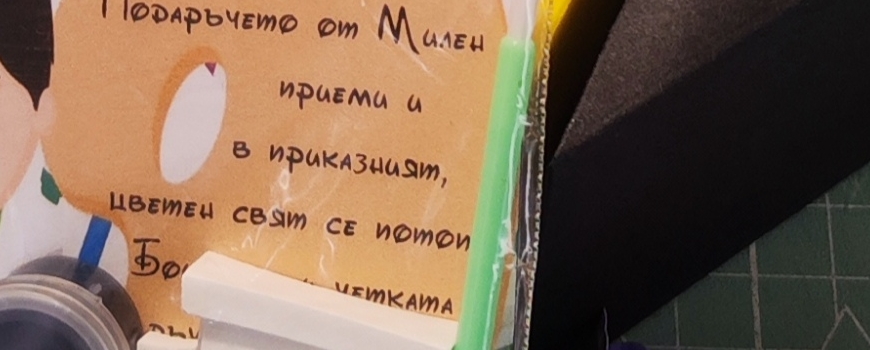 Подаръчето от Милен
приеми и
в приказният,
цветен свят се
четката